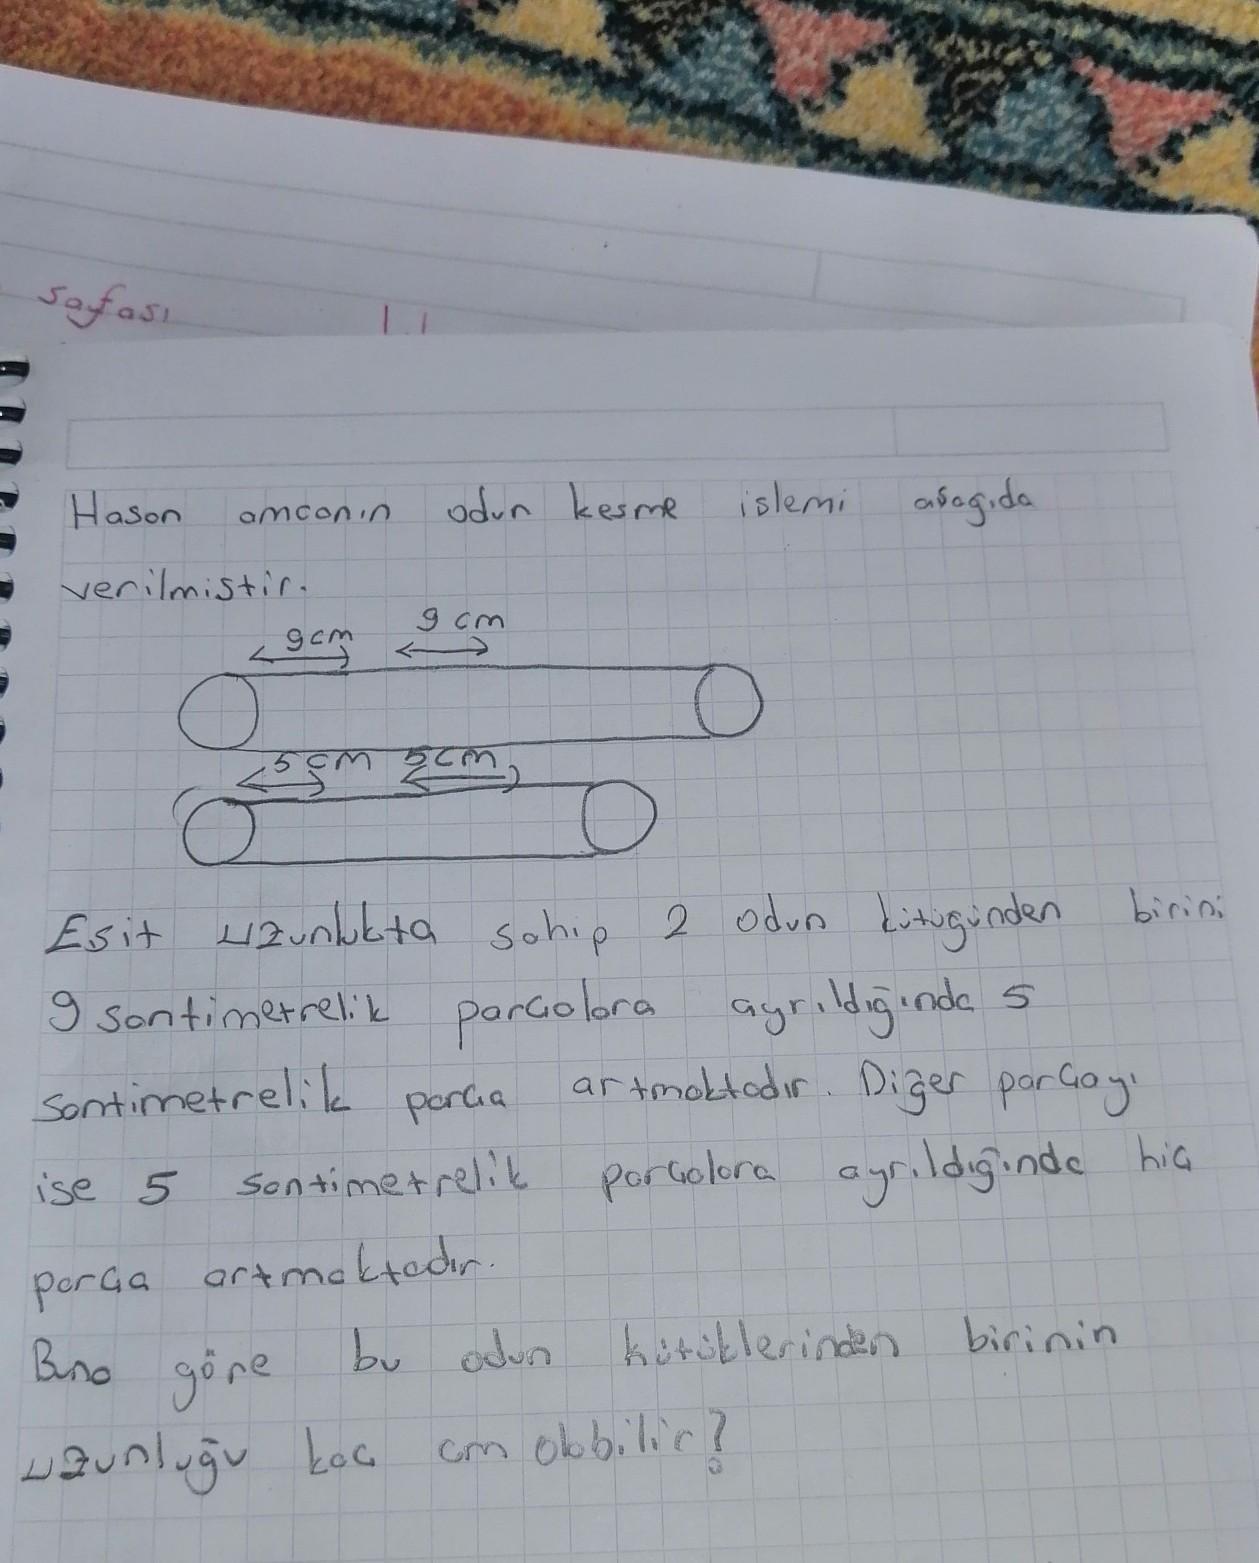 sayfası
Hasan amcanın odun kesme islemi aşagıda
verilmistir.
9cm 9 cm
5cm 5cm
Esit uzunlukta sahip 2 odun kütügünden birini
9 santimetrelik parçalara ayrıldığında 5
santimetrelik parça artmaktadır. Diğer parçayı
ise 5 santimetrelik parçalara ayrıldığında hiç
parça artmaktadır.
Buna göre bu odun kütüklerinden birinin
uzunluğu kaç cm olabilir?